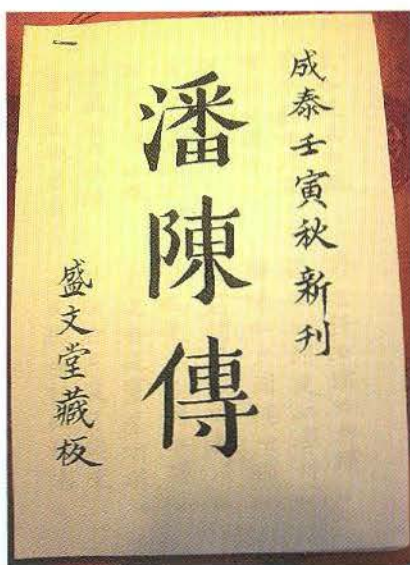 成泰壬寅秋新刊
潘陳傳
盛文堂藏板